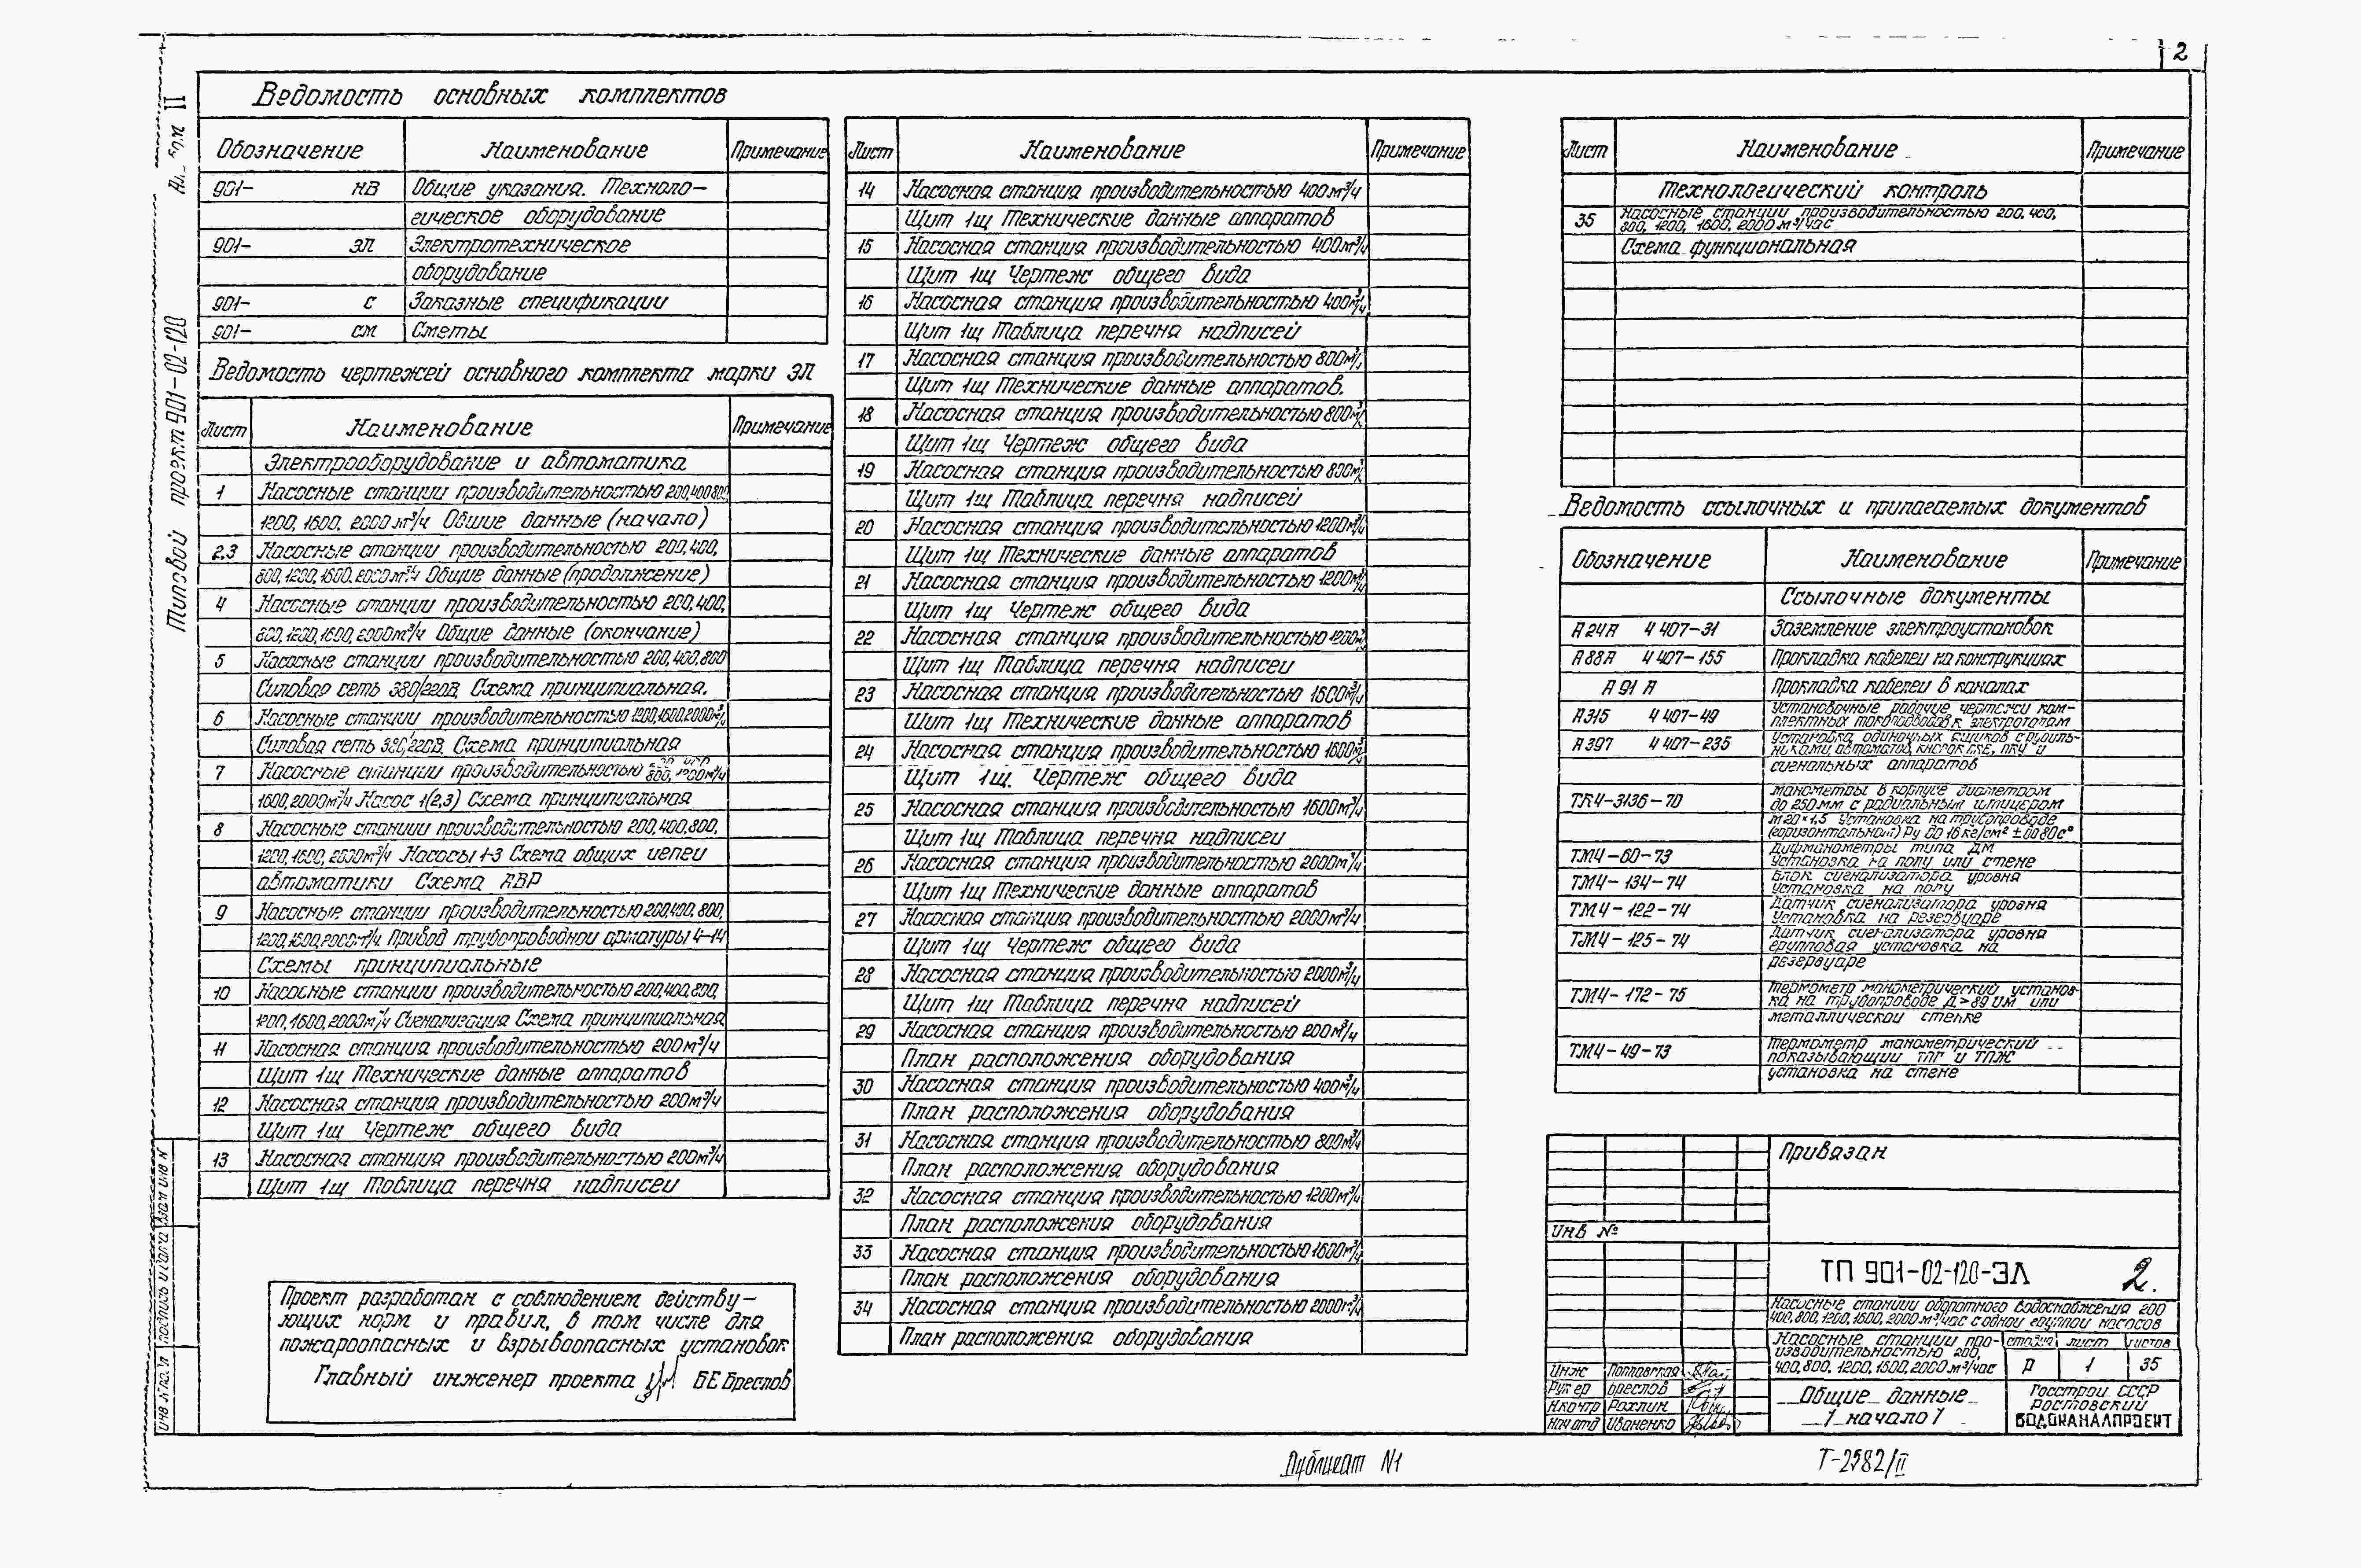 2
Альбом II
Типовой проект 901-02-120
Ведомость основных комплектов
Обозначение Наименование Примечание
901- НВ Общие указания. Техноло-
гическое оборудование
901- ЭЛ Электротехническое
оборудование
901- С Заказные спецификации
901- СМ Сметы
Ведомость чертежей основного комплекта марки ЭЛ
Лист Наименование Примечание
Электрооборудование и автоматика
1 Насосные станции производительностью 200,400,800,
1200, 1600, 2000 м³/ч Общие данные (начало)
2,3 Насосные станции производительностью 200,400,
800,1200,1600,2000м³/ч Общие данные (продолжение)
4 Насосные станции производительностью 200,400,
800,1200,1600,2000м³/ч Общие данные (окончание)
5 Насосные станции производительностью 200,400,800
Силовая сеть 380/220В. Схема принципиальная.
6 Насосные станции производительностью 1200,1600,2000м³/ч
Силовая сеть 380/220В. Схема принципиальная
7 Насосные станции производительностью 800, 1200м³/ч
1600,2000м³/ч Насос 1(2,3) Схема принципиальная
8 Насосные станции производительностью 200,400,800,
1200,1600,2000м³/ч Насосы 1-3 Схема общих цепей
автоматики Схема АВР
9 Насосные станции производительностью 200,400,800,
1200,1600,2000м³/ч Привод трубопроводной арматуры 4-14
Схемы принципиальные
10 Насосные станции производительностью 200,400,800,
1200,1600,2000м³/ч Сигнализация Схема принципиальная
11 Насосная станция производительностью 200м³/ч
Щит 1щ Технические данные аппаратов
12 Насосная станция производительностью 200м³/ч
Щит 1щ Чертеж общего вида
13 Насосная станция производительностью 200м³/ч
Щит 1щ Таблица перечня надписей
Проект разработан с соблюдением действу-
ющих норм и правил, в том числе для
пожароопасных и взрывоопасных установок
Главный инженер проекта Б Е Бреслов
Лист Наименование Примечание
14 Насосная станция производительностью 400м³/ч
Щит 1щ Технические данные аппаратов
15 Насосная станция производительностью 400м³/ч
Щит 1щ Чертеж общего вида
16 Насосная станция производительностью 400м³/ч
Щит 1щ Таблица перечня надписей
17 Насосная станция производительностью 800м³/ч
Щит 1щ Технические данные аппаратов.
18 Насосная станция производительностью 800м³/ч
Щит 1щ Чертеж общего вида
19 Насосная станция производительностью 800м³/ч
Щит 1щ Таблица перечня надписей
20 Насосная станция производительностью 1200м³/ч
Щит 1щ Технические данные аппаратов
21 Насосная станция производительностью 1200м³/ч
Щит 1щ Чертеж общего вида
22 Насосная станция производительностью 1200м³/ч
Щит 1щ Таблица перечня надписей
23 Насосная станция производительностью 1600м³/ч
Щит 1щ Технические данные аппаратов
24 Насосная станция производительностью 1600м³/ч
Щит 1щ. Чертеж общего вида
25 Насосная станция производительностью 1600м³/ч
Щит 1щ Таблица перечня надписей
26 Насосная станция производительностью 2000м³/ч
Щит 1щ Технические данные аппаратов
27 Насосная станция производительностью 2000м³/ч
Щит 1щ Чертеж общего вида
28 Насосная станция производительностью 2000м³/ч
Щит 1щ Таблица перечня надписей
29 Насосная станция производительностью 200м³/ч
План расположения оборудования
30 Насосная станция производительностью 400м³/ч
План расположения оборудования
31 Насосная станция производительностью 800м³/ч
План расположения оборудования
32 Насосная станция производительностью 1200м³/ч
План расположения оборудования
33 Насосная станция производительностью 1600м³/ч
План расположения оборудования
34 Насосная станция производительностью 2000м³/ч
План расположения оборудования
Лист Наименование Примечание
Технологический контроль
35 Насосные станции производительностью 200,400,
800, 1200, 1600, 2000 м³/час
Схема функциональная
Ведомость ссылочных и прилагаемых документов
Обозначение Наименование Примечание
Ссылочные документы
А24А 4 407-31 Заземление электроустановок
А88А 4 407-155 Прокладка кабелей на конструкциях
А 91 А Прокладка кабелей в каналах
А315 4 407-49 Установочные рабочие чертежи ком-
плектных токоподводов к электроталям
А397 4 407-235 Установка одиночных ящиков с рубиль-
никами, автоматов, кнопок ПКЕ, ПКУ и
сигнальных аппаратов
ТК4-3136-70 Манометры в корпусе диаметром
до 250мм с радиальным штуцером
М20×1,5 Установка на трубопроводе
(горизонтальной) Ру до 16 кг/см² t до 80 с°
ТМ4-60-73 Дифманометры типа ДМ
Установка на полу или стене
ТМ4-134-74 Блок сигнализатора уровня
Установка на полу
ТМ4-122-74 Датчик сигнализатора уровня
Установка на резервуаре
ТМ4-125-74 Датчик сигнализатора уровня
групповая установка на
резервуаре
ТМ4-172-75 Термометр манометрический установ-
ка на трубопроводе Д>89 мм или
металлической стенке
ТМ4-49-73 Термометр манометрический
показывающий ТПГ и ТПЖ
установка на стене
Привязан
Инв №
ТП 901-02-120-ЭЛ 2.
Насосные станции оборотного водоснабжения 200
400,800,1200,1600,2000 м³/час с одной группой насосов
Насосные станции про-
изводительностью 200,
400,800, 1200,1600,2000 м³/час
стадия лист листов
Р 1 35
Общие данные
/начало/
Госстрой СССР
Ростовский
ВОДОКАНАЛПРОЕКТ
Инж Поплавская
Рук гр Бреслов
Н контр Рохлин
Нач отд Иваненко
Инв № подл Подпись и дата Взам инв №
Дубликат №1
Т-2582/II